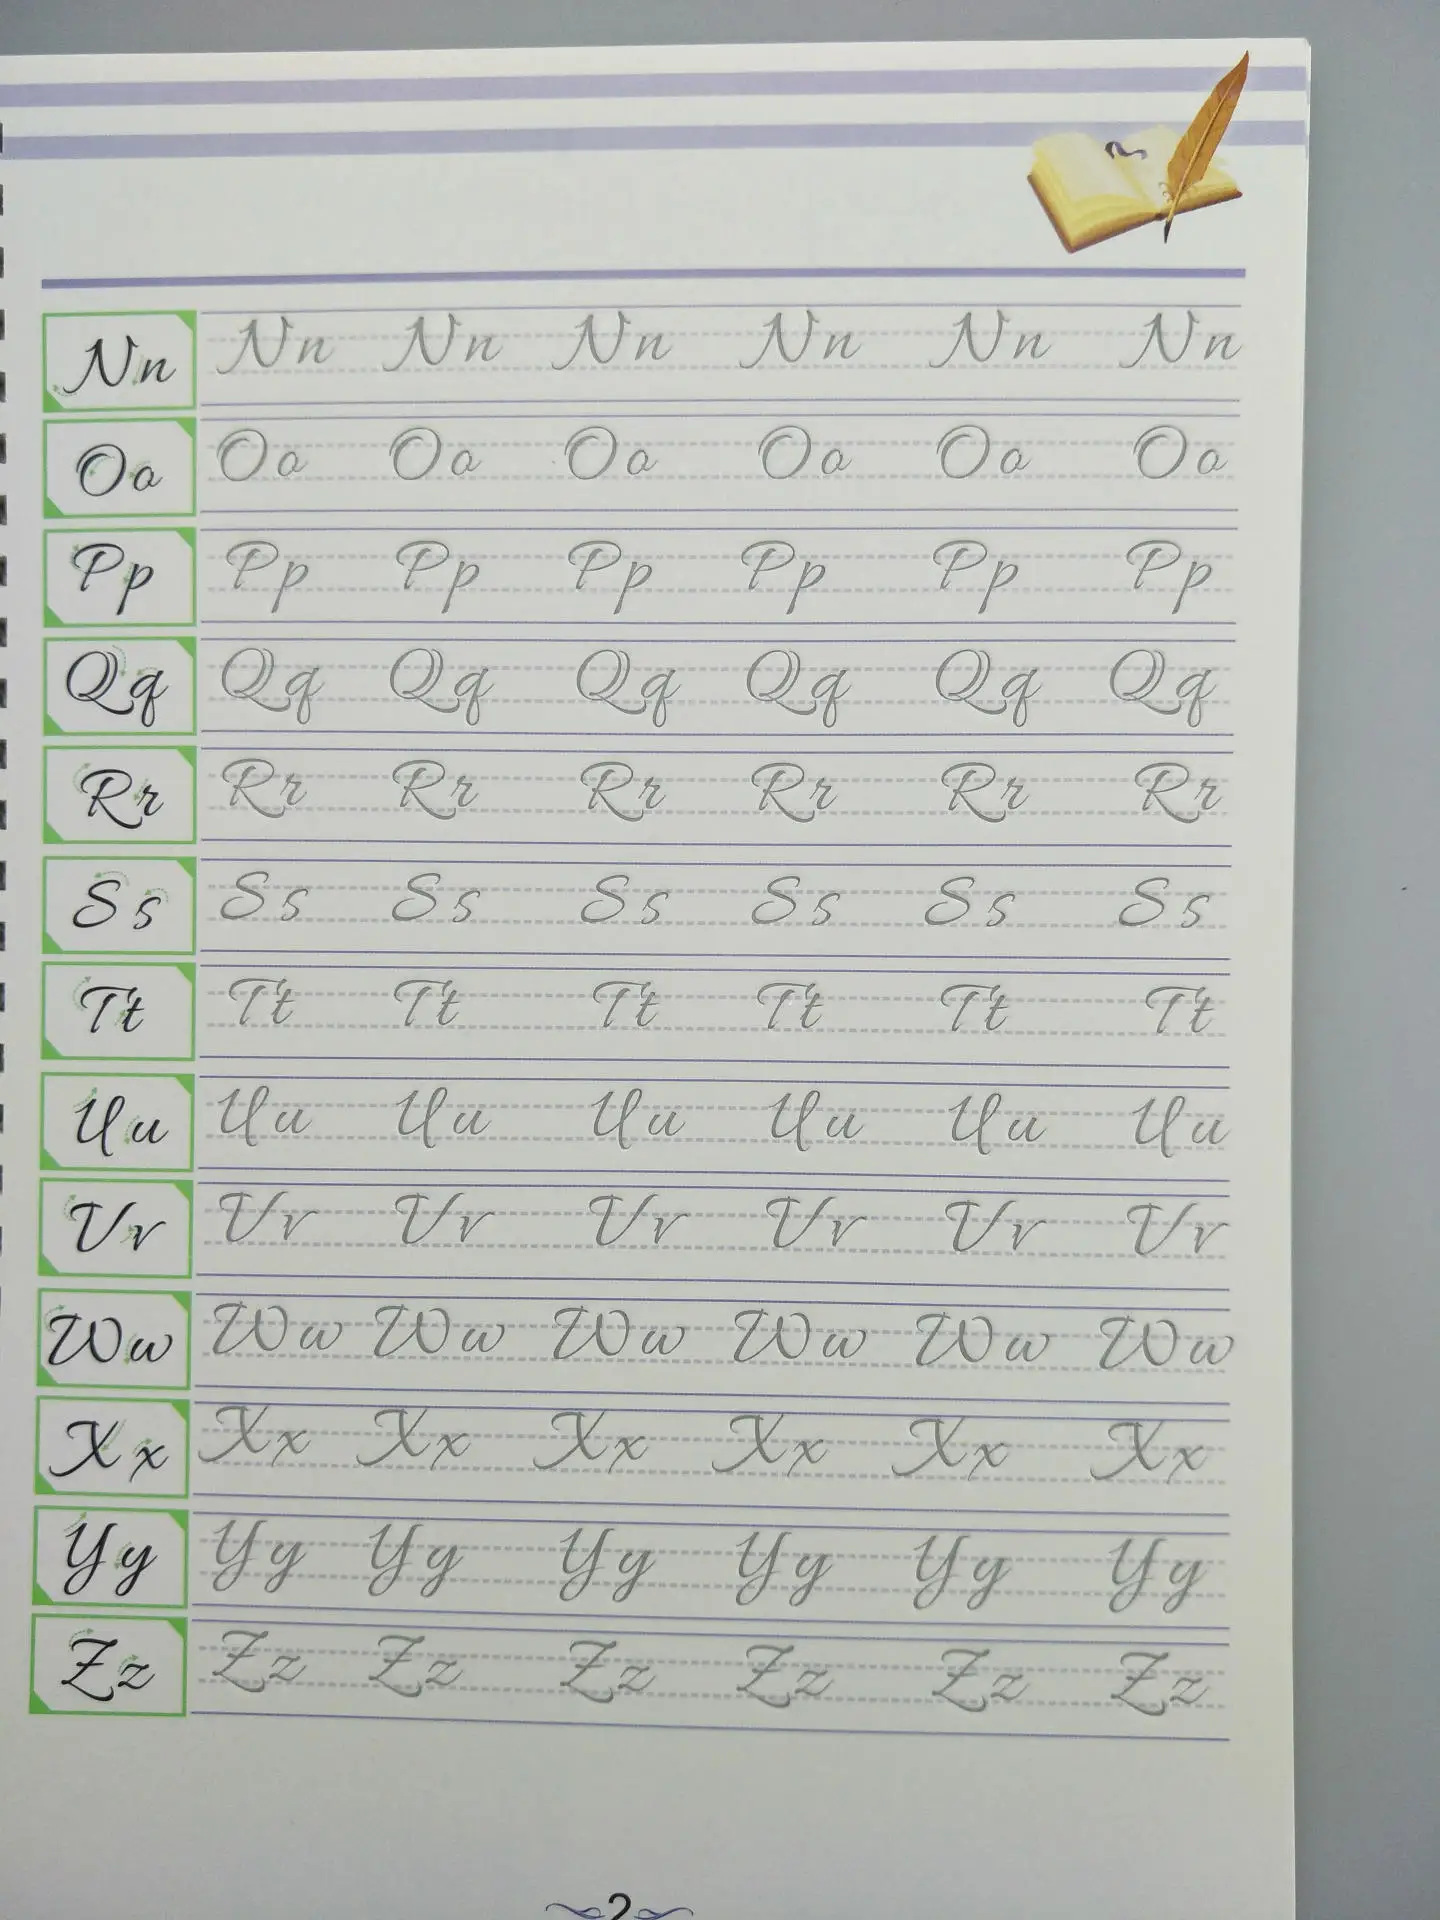 Nn Nn Nn Nn Nn Nn Nn
Oo Oo Oo Oo Oo Oo Oo
Pp Pp Pp Pp Pp Pp Pp
Qq Qq Qq Qq Qq Qq Qq
Rr Rr Rr Rr Rr Rr Rr
Ss Ss Ss Ss Ss Ss Ss
Tt Tt Tt Tt Tt Tt Tt
Uu Uu Uu Uu Uu Uu Uu
Vv Vv Vv Vv Vv Vv Vv
Ww Ww Ww Ww Ww Ww Ww
Xx Xx Xx Xx Xx Xx Xx
Yy Yy Yy Yy Yy Yy Yy
Zz Zz Zz Zz Zz Zz Zz
2